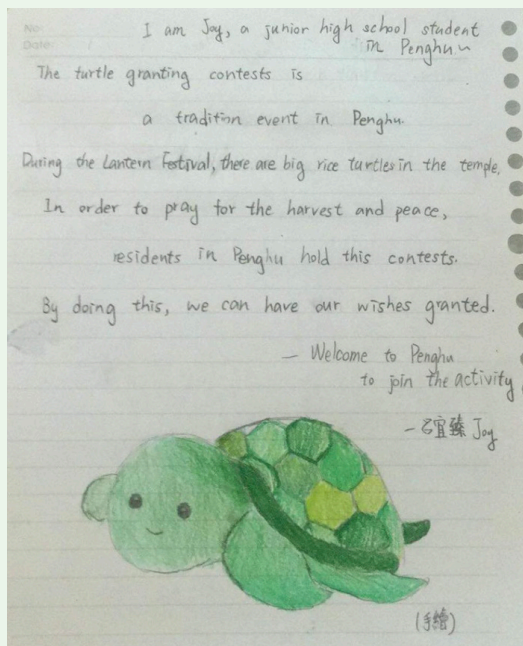 No:
Date:
I am Joy, a junior high school student
in Penghu~
The turtle granting contests is
a tradition event in Penghu.
During the Lantern Festival, there are big rice turtles in the temple,
In order to pray for the harvest and peace,
residents in Penghu hold this contests.
By doing this, we can have our wishes granted.
— Welcome to Penghu
to join the activity
—呂宜臻 Joy
(手繪)